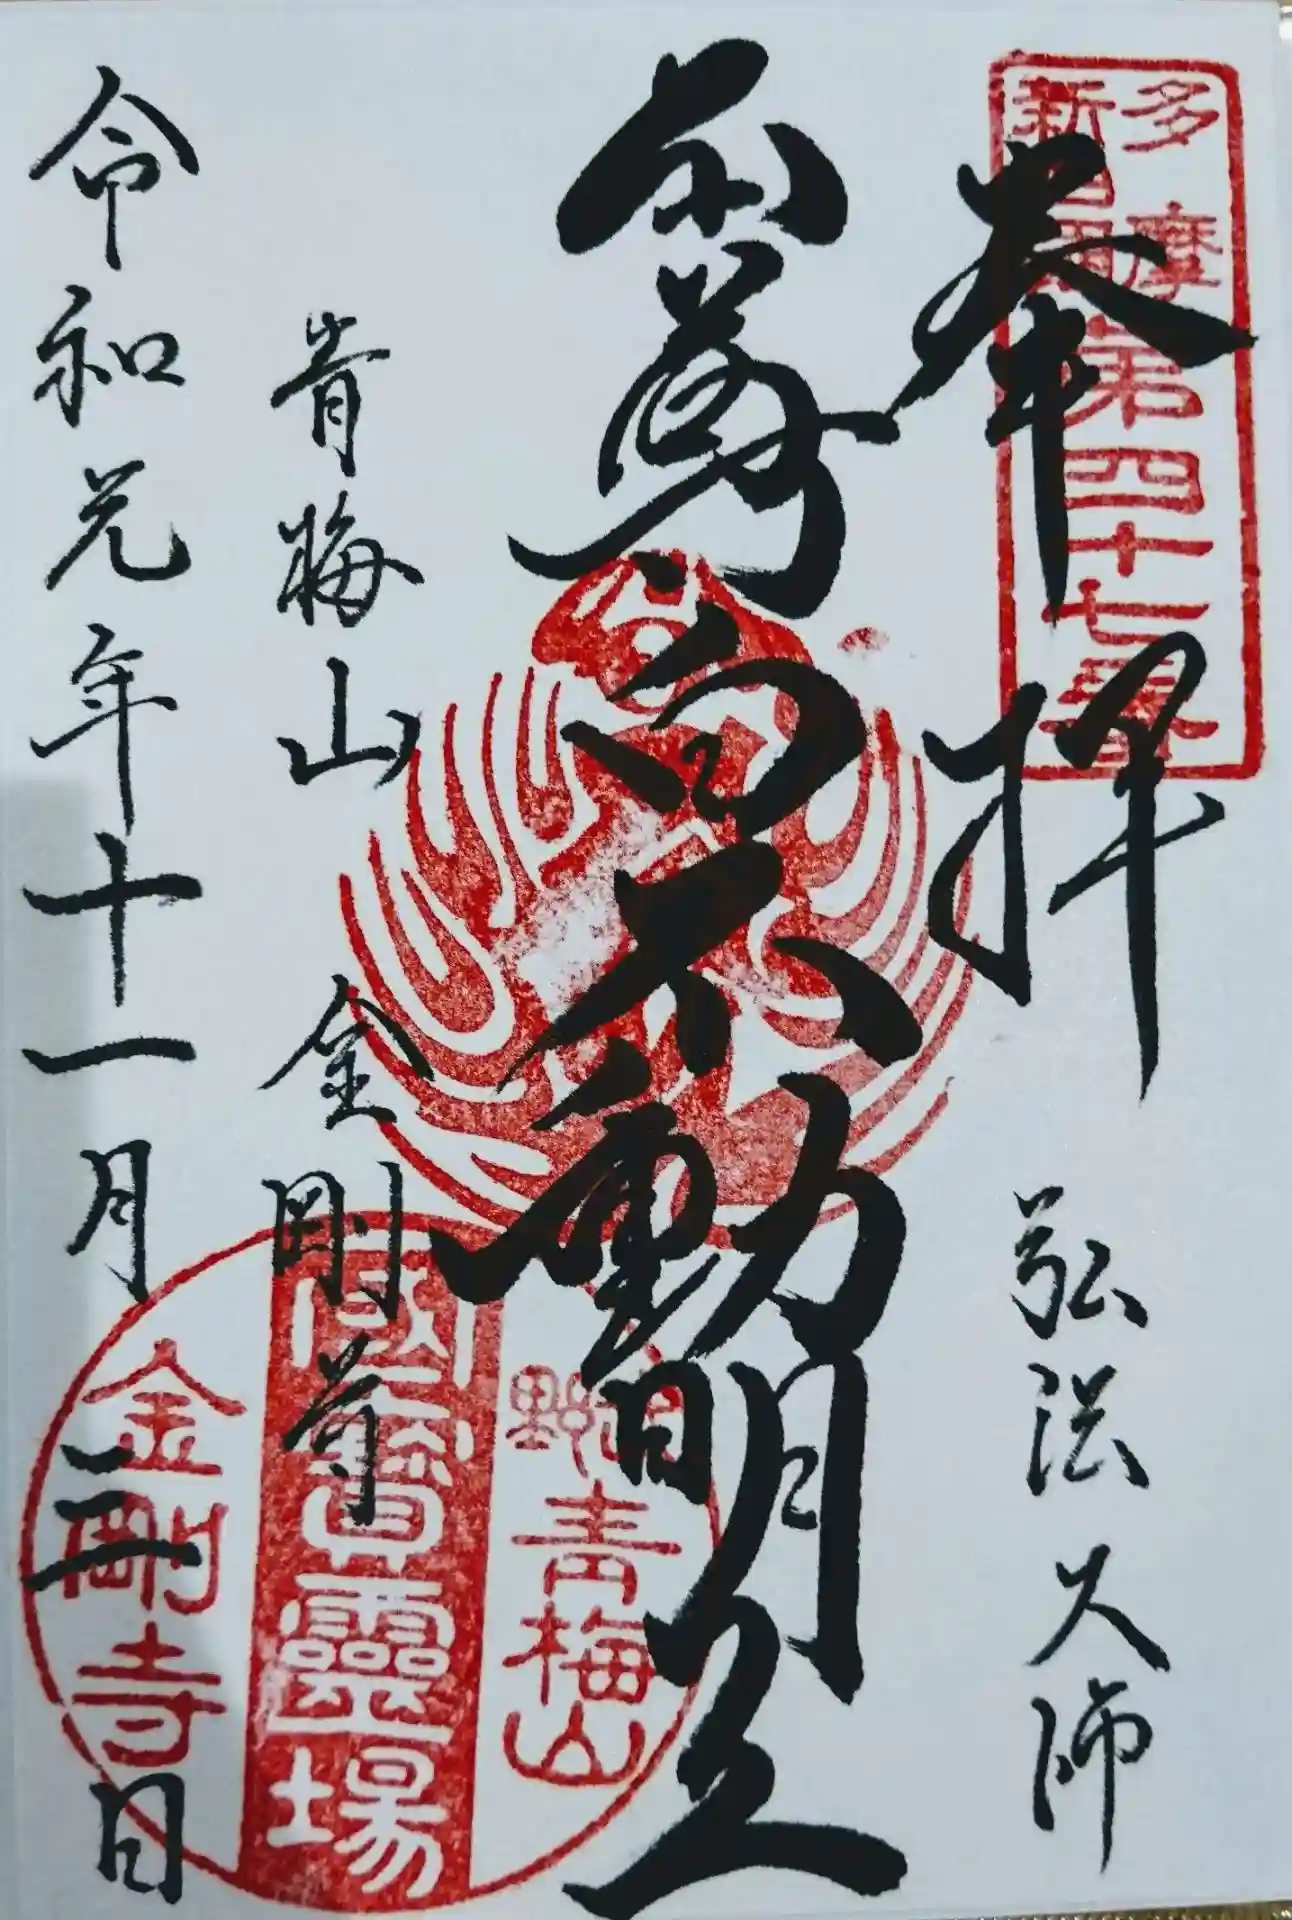 多摩
新四国
第四十七
奉拝
弘法大師
本尊白不動明王
青梅山 金剛寺
令和元年十一月三日
青梅山
國寶靈場
金剛寺